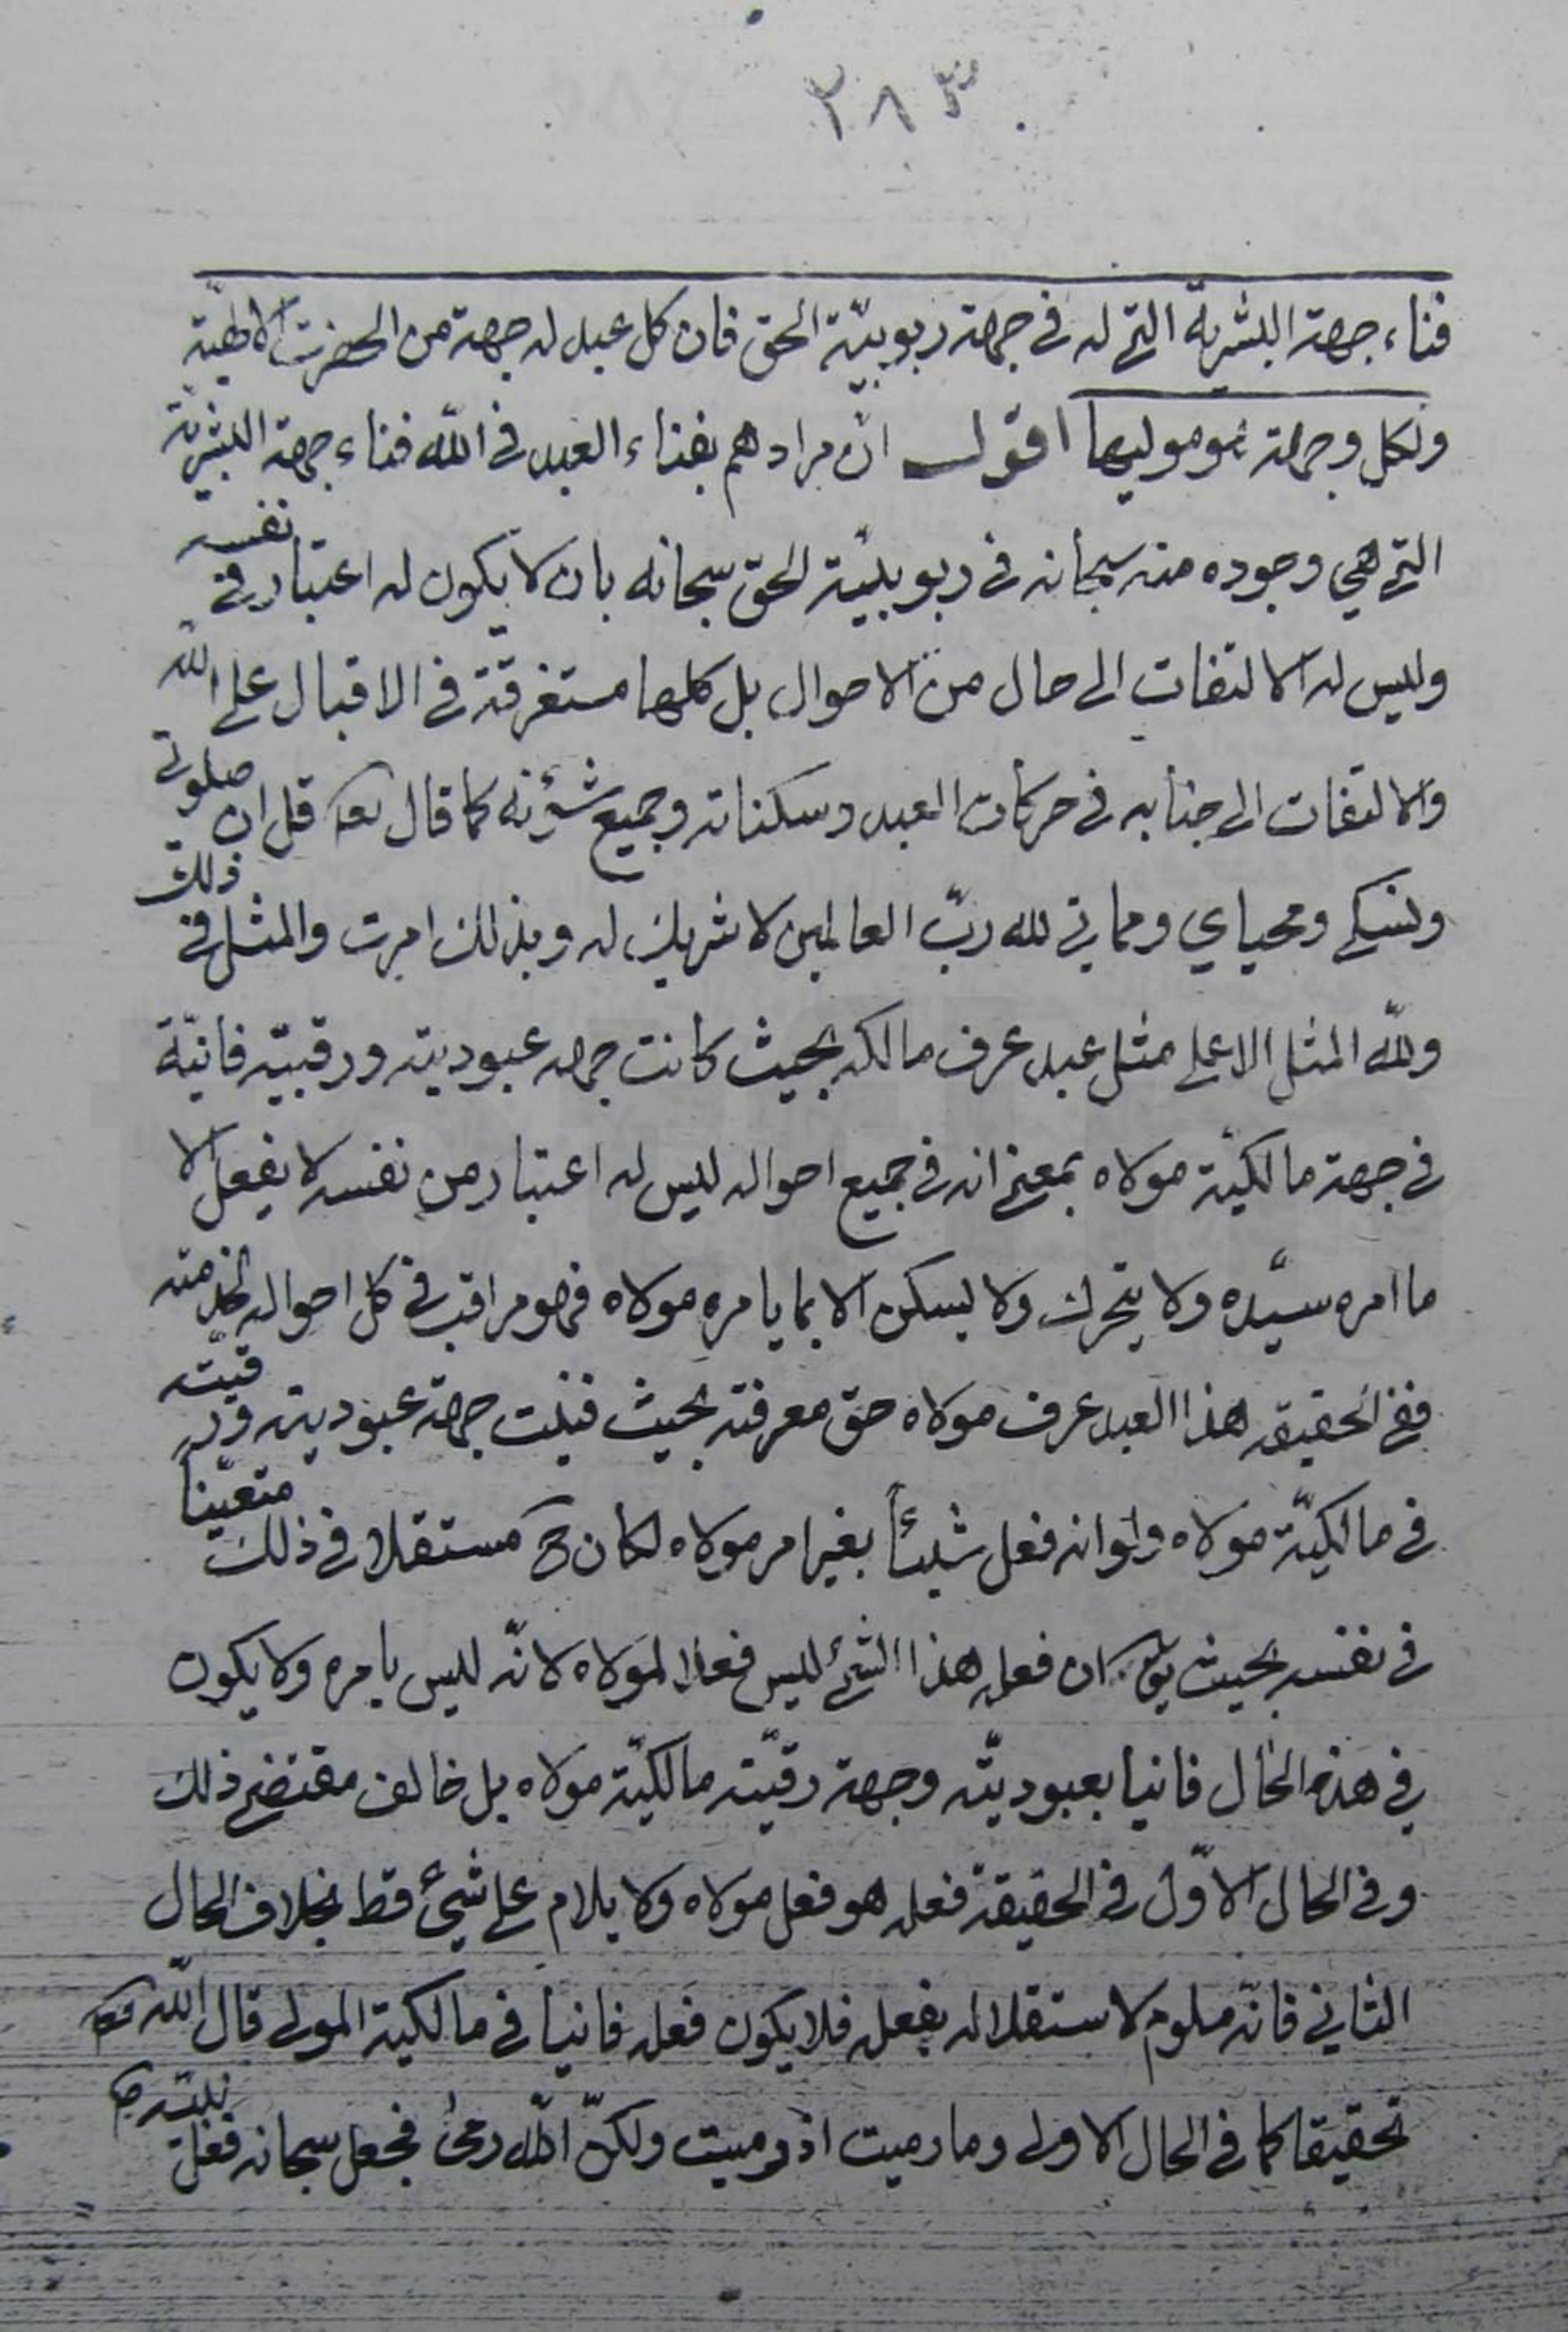 ٢٨٣
فناء جهة البشرية التى له فى جهة ربوبيّة الحق فان كل عبد له جهة من الحضرت الالهيّة
ولكل وجهة هو موليها اقول ان مرادهم بفناء العبد فى الله فناء جهة البشريّة
التى هي وجوده منه سبحانه فى ربوبيّة الحق سبحانه بان لا يكون له اعتبار فى نفسه
وليس له الالتفات الى حال من الاحوال بل كلها مستغرقة فى الاقبال على الله
والالتفات الى جنابه فى حركات العبد وسكناته وجميع شؤنه كما قال تعه قل ان صلوتى
ونسكى ومحياي ومماتى لله ربّ العالمين لا شريك له وبذلك امرت والمثل فى ذلك
ولله المثل الاعلى مثل عبد عرف مالكه بحيث كانت جهة عبوديته ورقيته فانيّة
فى جهة مالكيّة مولاه بمعنى انه فى جميع احواله ليس له اعتبار من نفسه لا يفعل الا
ما امره سيّده ولا يتحرك ولا يسكن الا بما يامره مولاه فهو مراقب فى كل احواله لخدمته
ففى الحقيقه هذا العبد عرف مولاه حق معرفته بحيث فنيت جهة عبوديته ورقيّته
فى مالكيّة مولاه ولو انه فعل شيئاً بغير امر مولاه لكان ح مستقلا فى ذلك متعيّناً
فى نفسه بحيث يق ان فعل هذا الشئ ليس فعلا لمولاه لانّه ليس بامره ولا يكون
فى هذه الحال فانيا بعبوديّته وجهة رقيّته مالكيّة مولاه بل خالف مقتضى ذلك
وفى الحال الاوّل فى الحقيقة فعله هو فعل مولاه ولا يلام على شئ قط بخلاف الحال
الثانى فانّه ملوم لاستقلاله بفعله فلا يكون فعله فانيا فى مالكية المولى قال الله تعه
تحقيقا كما فى الحال الاولى وما رميت اذ رميت ولكنّ الله رمى فجعل سبحانه فعل نبيّه ص